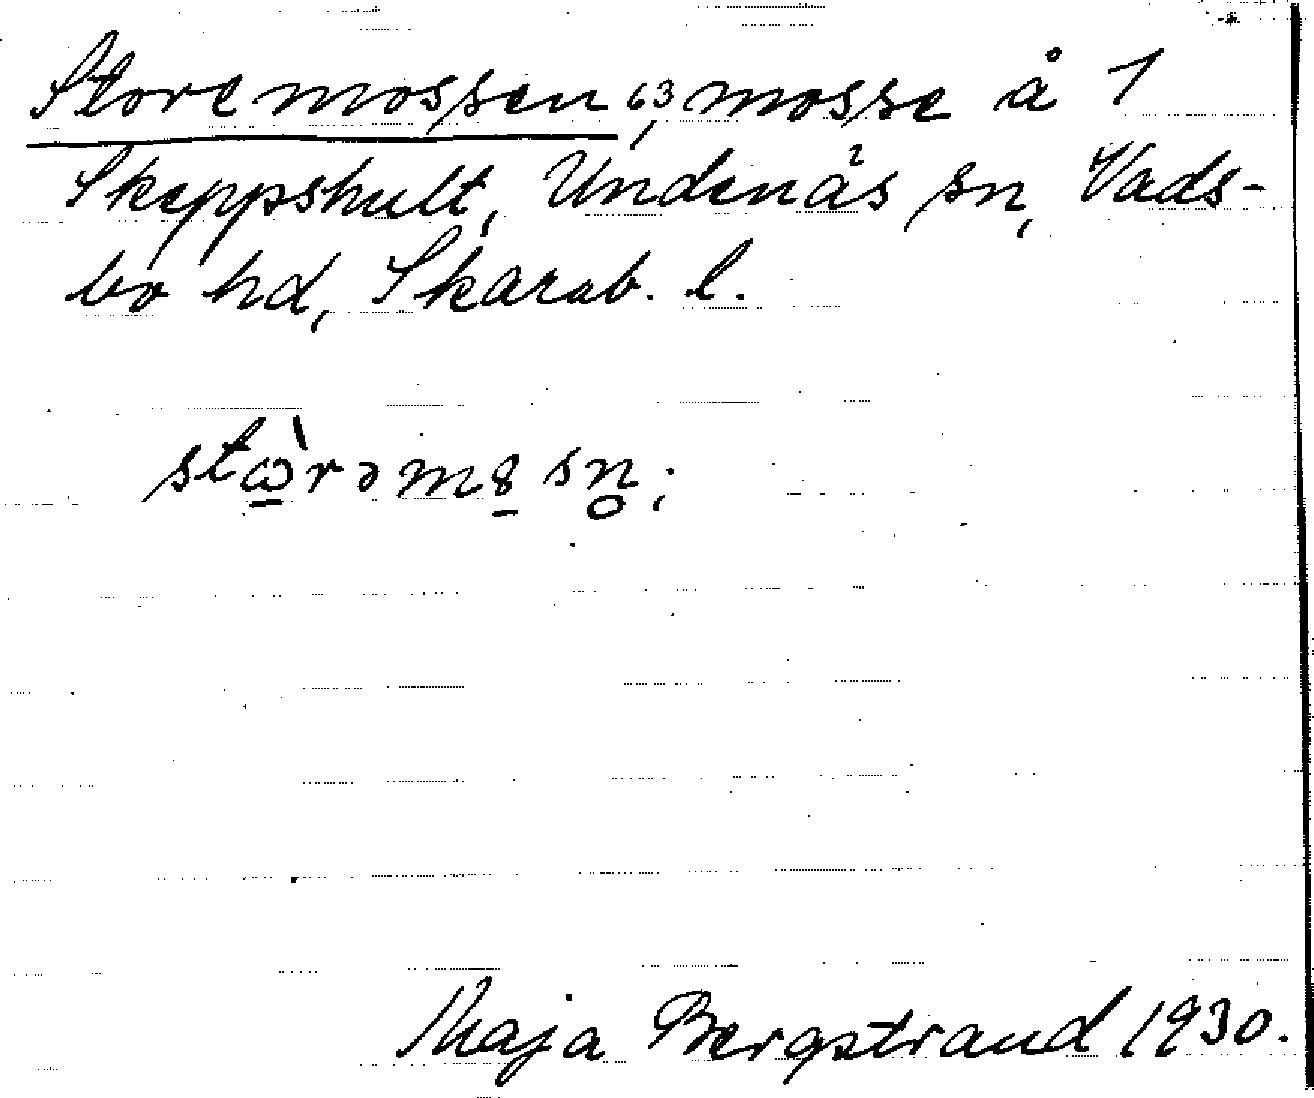 Storemossen 63, mosse å 1
Skeppshult, Undenäs sn, Vads-
bo hd, Skarab. l.
stὼ̲rəm8̲sn̥;
Maja Bergstrand 1930.